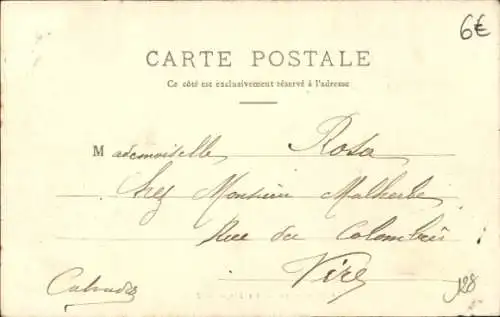 6€
CARTE POSTALE
Ce côté est exclusivement réservé à l'adresse
Mademoiselle Rosa
Chez Monsieur Malherbe
Rue du Calombrès
Vire
Calvados
128